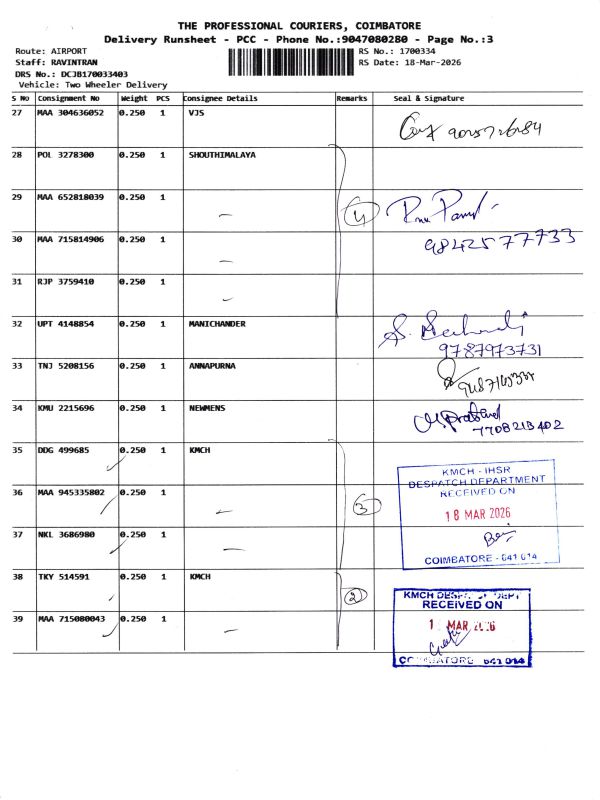 THE PROFESSIONAL COURIERS, COIMBATORE
Delivery Runsheet - PCC - Phone No.:9047080280 - Page No.:3
Route: AIRPORT
Staff: RAVINTRAN
DRS No.: DCJB170033403
Vehicle: Two Wheeler Delivery
RS No.: 1700334
RS Date: 18-Mar-2026
S No Consignment No Weight PCS Consignee Details Remarks Seal & Signature
27 MAA 304636052 0.250 1 VJS
28 POL 3278300 0.250 1 SHOUTHIMALAYA
29 MAA 652818039 0.250 1 —
4
30 MAA 715814906 0.250 1 — 9842577733
31 RJP 3759410 0.250 1 —
32 UPT 4148854 0.250 1 MANICHANDER
9787973731
33 TNJ 5208156 0.250 1 ANNAPURNA
34 KMU 2215696 0.250 1 NEWMENS
7708213402
35 DDG 499685 0.250 1 KMCH
36 MAA 945335802 0.250 1 — 3
37 NKL 3686980 0.250 1 —
KMCH - IHSR
DESPATCH DEPARTMENT
RECEIVED ON
18 MAR 2026
COIMBATORE - 641 014
38 TKY 514591 0.250 1 KMCH 2
39 MAA 715080043 0.250 1 —
KMCH
RECEIVED ON
MAR
COIMBATORE 641 014